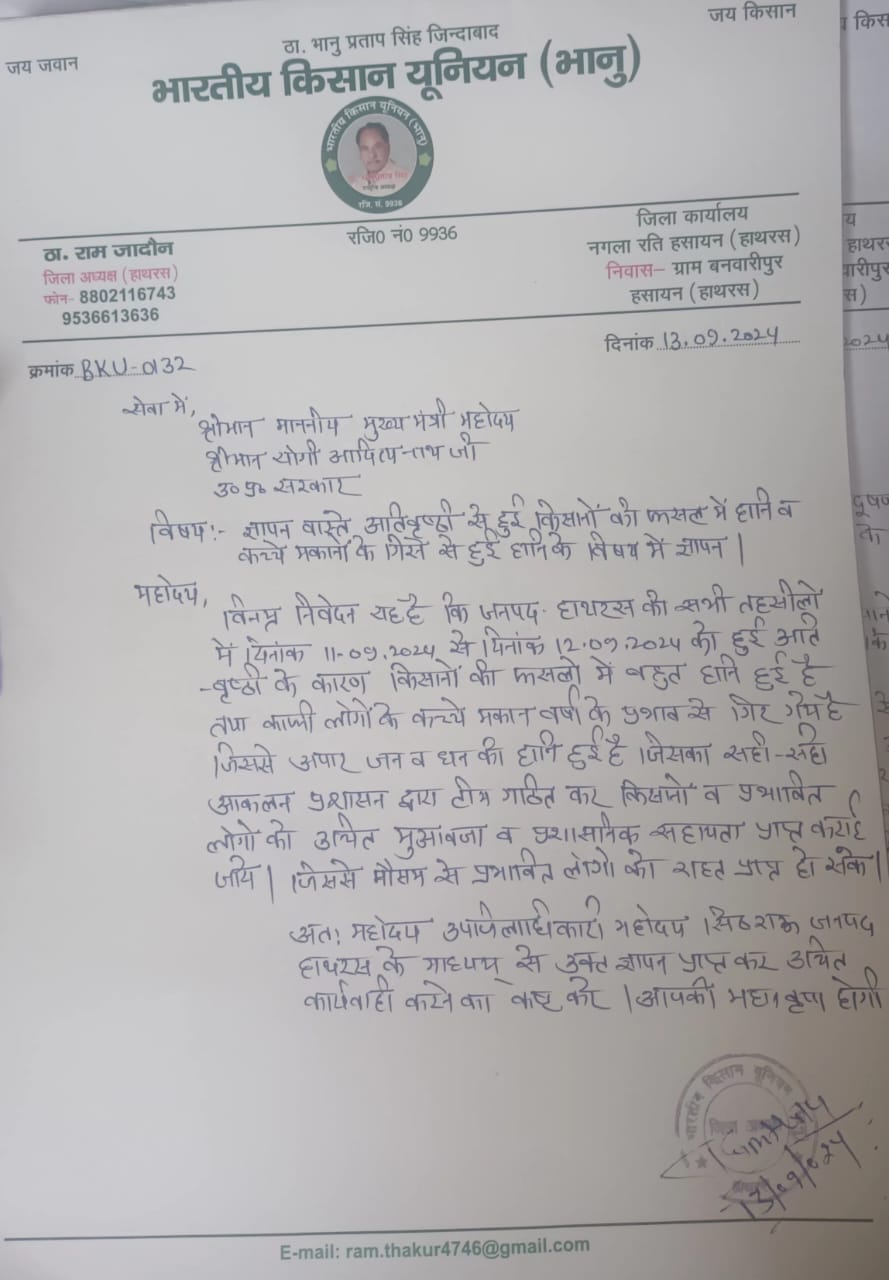 जय जवान
ठा. भानु प्रताप सिंह जिन्दाबाद
जय किसान
भारतीय किसान यूनियन (भानु)
भारतीय किसान यूनियन (भानु)
रजि. सं. 9936
ठा. राम जादौन
जिला अध्यक्ष (हाथरस)
फोन- 8802116743
9536613636
रजि0 नं0 9936
जिला कार्यालय
नगला रति हसायन (हाथरस)
निवास- ग्राम बनवारीपुर
हसायन (हाथरस)
क्रमांक BKU-0132
दिनांक 13.09.2024
सेवा में,
श्रीमान माननीय मुख्य मंत्री महोदय
श्रीमान योगी आदित्यनाथ जी
उ०प्र० सरकार
विषय:- ज्ञापन वास्ते अतिवृष्ठी से हुई किसानों की फसल में हानि व
कच्चे मकानों के गिरने से हुई हानि के विषय में ज्ञापन |
महोदय,
विनम्र निवेदन यह है कि जनपद- हाथरस की सभी तहसीलों
में दिनांक 11-09.2024 से दिनांक 12.09.2024 को हुई अति
-वृष्ठी के कारण किसानों की फसलो में बहुत हानि हुई है
तथा काफी लोगों के कच्चे मकान वर्षा के प्रभाव से गिर गये है
जिससे अपार जन व धन की हानि हुई है जिसका सही-सही
आकलन प्रशासन द्वारा टीम गठित कर किसानो व प्रभावित
लोगो को उचित मुआवजा व प्रशासनिक सहायता प्राप्त कराई
जाये | जिससे मौसम से प्रभावित लोगो को राहत प्राप्त हो सके |
अतः महोदय उपजिलाधिकारी महोदय सि०राऊ जनपद
हाथरस के माध्यम से उक्त ज्ञापन प्राप्त कर उचित
कार्यवाही करने का कष्ट करे | आपकी महान कृपा होगी
भारतीय किसान यूनियन
हाथरस
13/09/024
E-mail: ram.thakur4746@gmail.com